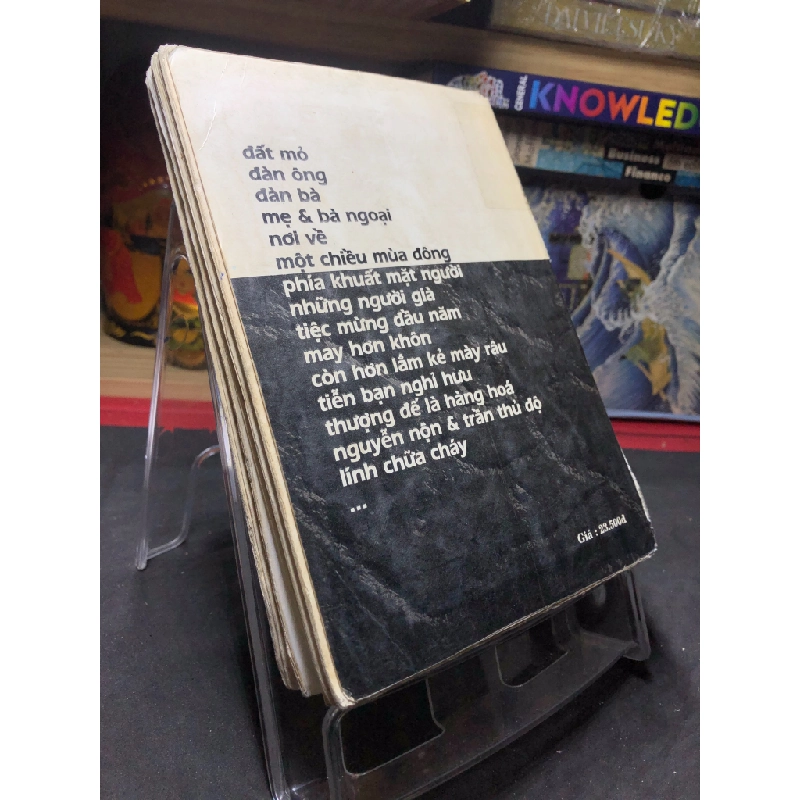 ĐẠI VIỆT SỬ KÝ
GENERAL
KNOWLED
Business
Finance
đất mỏ
đàn ông
đàn bà
mẹ & bà ngoại
nơi về
một chiều mùa đông
phía khuất mặt người
những người già
tiệc mừng đầu năm
may hơn khôn
còn hơn lắm kẻ mày râu
tiễn bạn nghỉ hưu
thượng đế là hàng hoá
nguyễn nộn & trần thủ độ
lính chữa cháy
...
Giá : 23.500đ